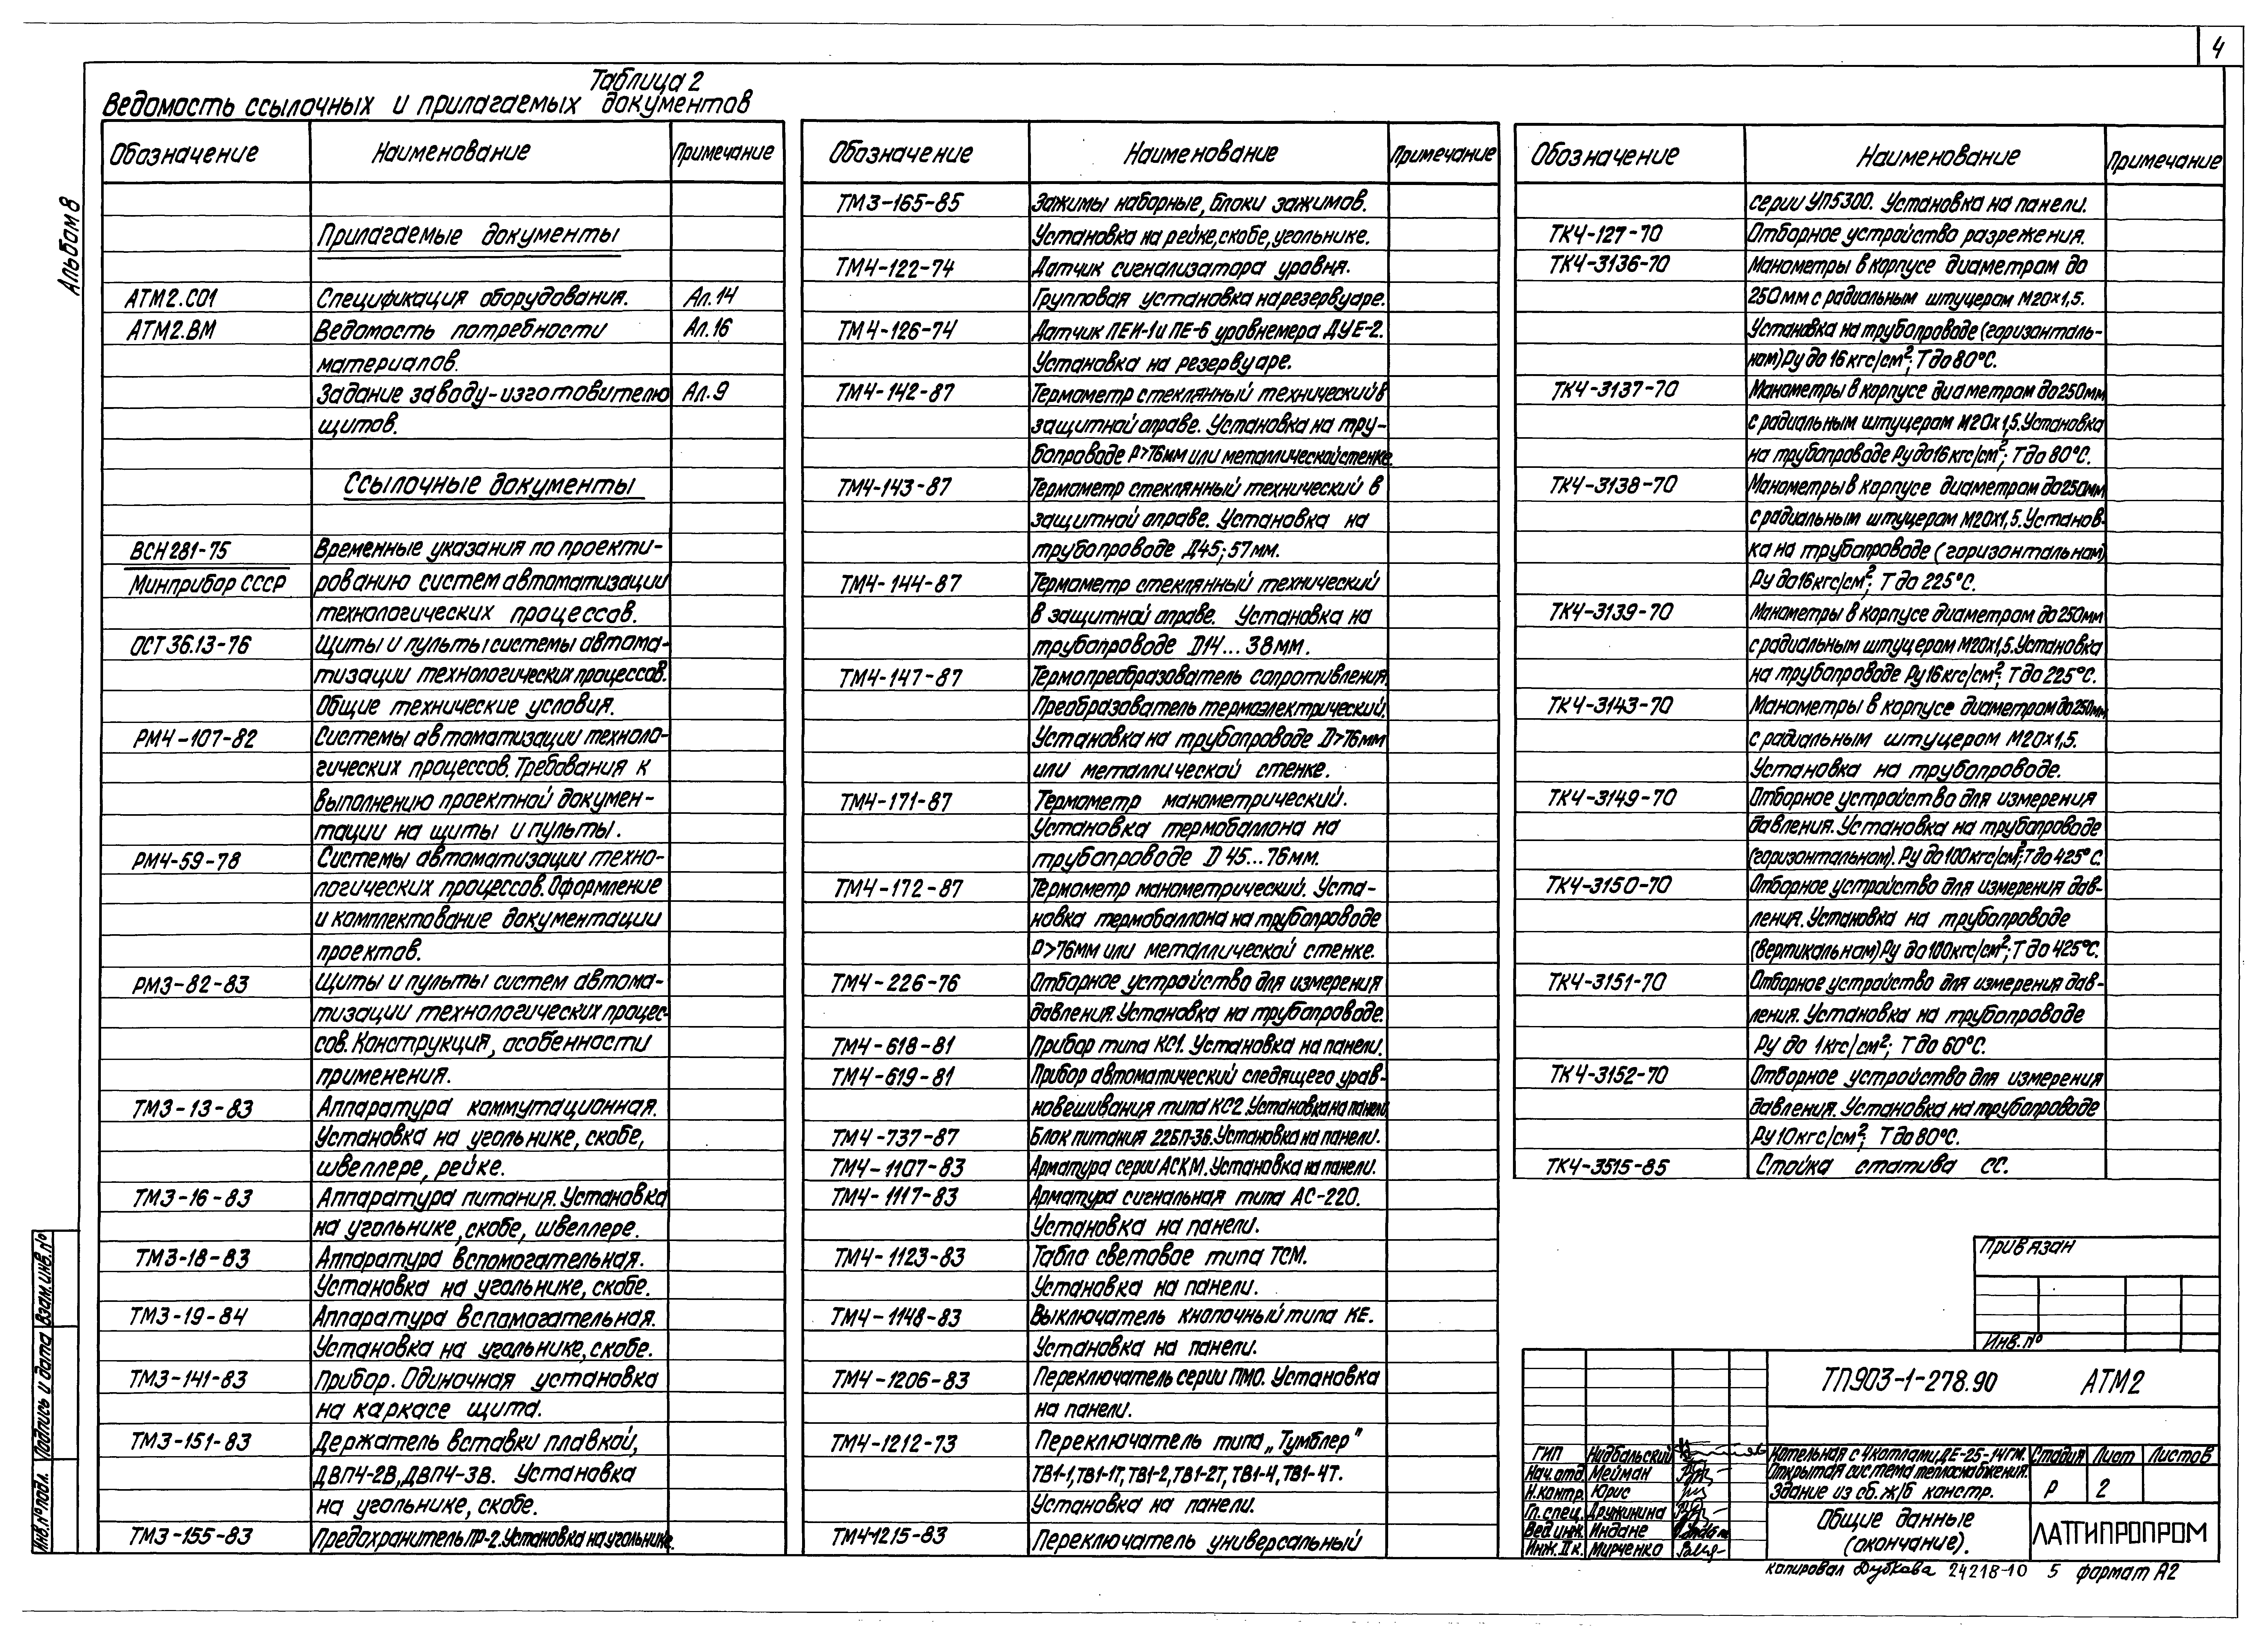 4
Альбом 8
Таблица 2
Ведомость ссылочных и прилагаемых документов
Обозначение Наименование Примечание
Прилагаемые документы
АТМ2.С01 Спецификация оборудования. Ал.14
АТМ2.ВМ Ведомость потребности Ал.16
материалов.
Задание заводу-изготовителю Ал.9
щитов.
Ссылочные документы
ВСН 281-75 Временные указания по проекти-
Минприбор СССР рованию систем автоматизации
технологических процессов.
ОСТ 36.13-76 Щиты и пульты системы автома-
тизации технологических процессов.
Общие технические условия.
РМ4-107-82 Системы автоматизации техноло-
гических процессов. Требования к
выполнению проектной докумен-
тации на щиты и пульты.
РМ4-59-78 Системы автоматизации техно-
логических процессов. Оформление
и комплектование документации
проектов.
РМ3-82-83 Щиты и пульты систем автома-
тизации технологических процес-
сов. Конструкция, особенности
применения.
ТМ3-13-83 Аппаратура коммутационная.
Установка на угольнике, скобе,
швеллере, рейке.
ТМ3-16-83 Аппаратура питания. Установка
на угольнике, скобе, швеллере.
ТМ3-18-83 Аппаратура вспомогательная.
Установка на угольнике, скобе.
ТМ3-19-84 Аппаратура вспомогательная.
Установка на угольнике, скобе.
ТМ3-141-83 Прибор. Одиночная установка
на каркасе щита.
ТМ3-151-83 Держатель вставки плавкой,
ДВП4-2В, ДВП4-3В. Установка
на угольнике, скобе.
ТМ3-155-83 Предохранитель ПР-2. Установка на угольнике.
Обозначение Наименование Примечание
ТМ3-165-85 Зажимы наборные, блоки зажимов.
Установка на рейке, скобе, угольнике.
ТМ4-122-74 Датчик сигнализатора уровня.
Групповая установка на резервуаре.
ТМ4-126-74 Датчик ПЕИ-1 и ПЕ-6 уровнемера ДУЕ-2.
Установка на резервуаре.
ТМ4-142-87 Термометр стеклянный технический в
защитной оправе. Установка на тру-
бопроводе D>76мм или металлической стенке.
ТМ4-143-87 Термометр стеклянный технический в
защитной оправе. Установка на
трубопроводе Д45; 57мм.
ТМ4-144-87 Термометр стеклянный технический
в защитной оправе. Установка на
трубопроводе D14...38мм.
ТМ4-147-87 Термопреобразователь сопротивления.
Преобразователь термоэлектрический.
Установка на трубопроводе D>76мм
или металлической стенке.
ТМ4-171-87 Термометр манометрический.
Установка термобаллона на
трубопроводе D 45...76мм.
ТМ4-172-87 Термометр манометрический. Уста-
новка термобаллона на трубопроводе
D>76мм или металлической стенке.
ТМ4-226-76 Отборное устройство для измерения
давления. Установка на трубопроводе.
ТМ4-618-81 Прибор типа КС1. Установка на панели.
ТМ4-619-81 Прибор автоматический следящего урав-
новешивания типа КС2. Установка на панели
ТМ4-737-87 Блок питания 22БП-36. Установка на панели.
ТМ4-1107-83 Арматура серии АСКМ. Установка на панели.
ТМ4-1117-83 Арматура сигнальная типа АС-220.
Установка на панели.
ТМ4-1123-83 Табло световое типа ТСМ.
Установка на панели.
ТМ4-1148-83 Выключатель кнопочный типа КЕ.
Установка на панели.
ТМ4-1206-83 Переключатель серии ПМО. Установка
на панели.
ТМ4-1212-73 Переключатель типа „Тумблер"
ТВ1-1, ТВ1-1Т, ТВ1-2, ТВ1-2Т, ТВ1-4, ТВ1-4Т.
Установка на панели.
ТМ4-1215-83 Переключатель универсальный
Обозначение Наименование Примечание
серии УП5300. Установка на панели.
ТК4-127-70 Отборное устройство разрежения.
ТК4-3136-70 Манометры в корпусе диаметром до
250мм с радиальным штуцером М20×1,5.
Установка на трубопроводе (горизонталь-
ном) Ру до 16 кгс/см²; Т до 80°С.
ТК4-3137-70 Манометры в корпусе диаметром до 250мм
с радиальным штуцером М20×1,5. Установка
на трубопроводе Ру до 16 кгс/см²; Т до 80°С.
ТК4-3138-70 Манометры в корпусе диаметром до 250мм
с радиальным штуцером М20×1,5. Установ-
ка на трубопроводе (горизонтальном)
Ру до 16 кгс/см²; Т до 225°С.
ТК4-3139-70 Манометры в корпусе диаметром до 250мм
с радиальным штуцером М20×1,5. Установка
на трубопроводе Ру 16 кгс/см²; Т до 225°С.
ТК4-3143-70 Манометры в корпусе диаметром до 250мм
с радиальным штуцером М20×1,5.
Установка на трубопроводе.
ТК4-3149-70 Отборное устройство для измерения
давления. Установка на трубопроводе
(горизонтальном). Ру до 100 кгс/см²; Т до 425°С.
ТК4-3150-70 Отборное устройство для измерения дав-
ления. Установка на трубопроводе
(вертикальном) Ру до 100 кгс/см²; Т до 425°С.
ТК4-3151-70 Отборное устройство для измерения дав-
ления. Установка на трубопроводе
Ру до 1 кгс/см²; Т до 60°С.
ТК4-3152-70 Отборное устройство для измерения
давления. Установка на трубопроводе
Ру 10 кгс/см²; Т до 80°С.
ТК4-3515-85 Стойка статива СС.
Привязан
Инв.№
ТП903-1-278.90 АТМ2
ГИП Нидбальский
Нач.отд Мейман
Н.контр. Юрис
Гл.спец. Дружинина
Вед.инж. Индане
Инж. II к. Мирченко
Котельная с 4 котлами ДЕ-25-14ГМ.
Открытая система теплоснабжения.
Здание из сб. ж/б констр.
Стадия Лист Листов
Р 2
Общие данные
(окончание).
ЛАТГИПРОПРОМ
копировал Дубкова 24218-10 5 формат А2
Инв.№ подл. Подпись и дата Взам.инв.№